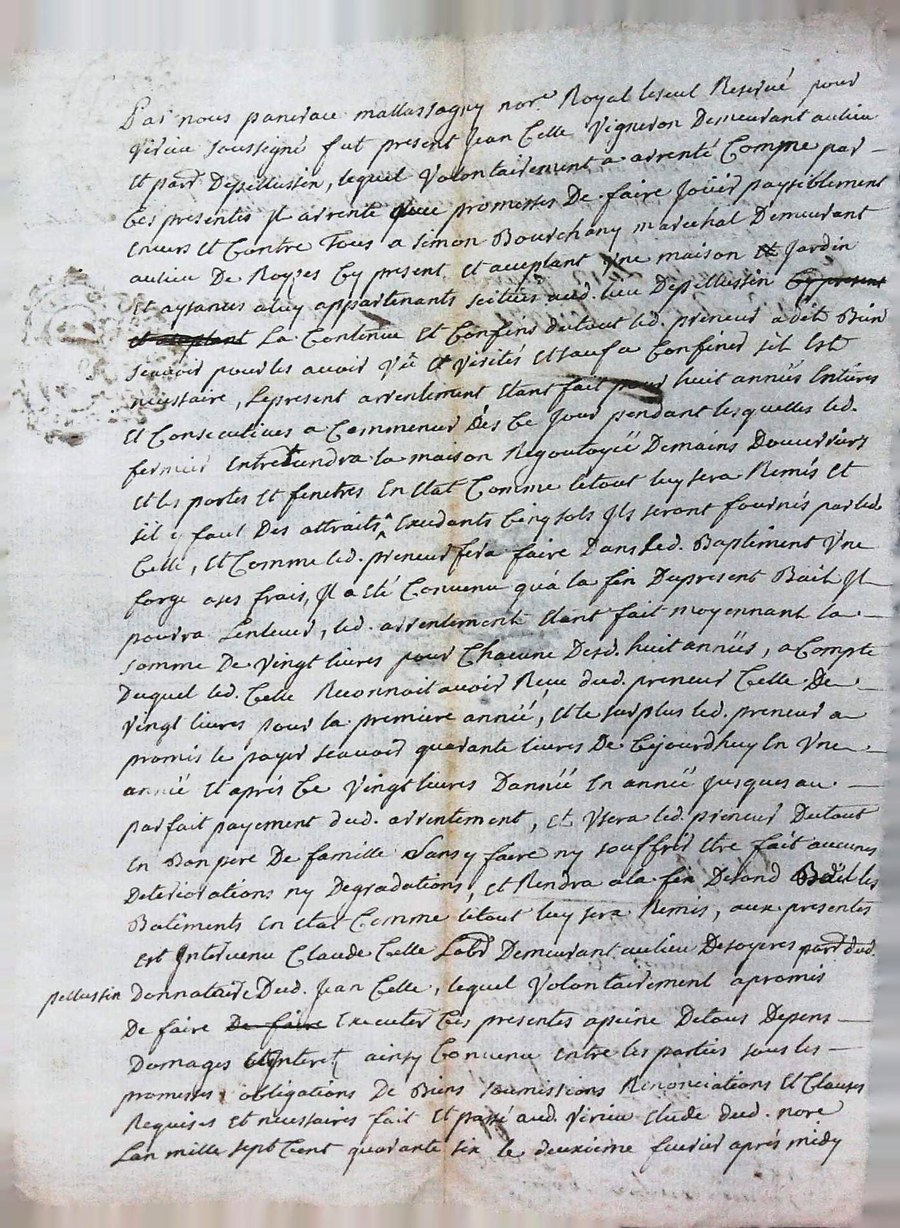 Par nous pancrace mallassagny nore Royal le seul Reservé pour
virieu soussigné fut present Jean Celle Vigneron Demeurant au lieu
Et parr Depellussin, lequel Volontairement a arrenté Comme par
Ces presentes Il arrente promesses De faire Joüir paysiblement
Envers Et Contre Tous a Simon Bourchany marechal Demeurant
au lieu De Royses Cy present Et aceptant Une maison Et Jardin
Et aysances aluy appartenants scitües aud. lieu Depellussin Cy present
et aceptant La Contenüe Et Confins Dutout led. preneur a dit Bien
scavoir pour les avoir Vû Et Visités Et sauf a Confiner sil Est
necessaire, Lepresent arrentement Etant fait pour huit années Entieres
Et Consecutives a Commencer Dés Ce Jour pendant lesquelles led.
fermier Entretiendra la maison Regoutoyée Demains Douvriers
Et les portes Et fenetres En Etat Comme letout luy sera Remis Et
sil y faut Des attraits Exedants Cinq sols Ils seront fournés par led.
Celle, Et Comme led. preneur fera faire Dans Led. Baptiment Une
forge ases frais, Il a Eté Convenu quà la fin Dupresent Bail Il
poudra Lenlever, led. arrentement Etant fait moyennant la
somme De Vingt livres pour Chacune Desd. huit années, a Compte
Duquel led. Celle Reconnoit avoir Reçu dud. preneur Celle De
Vingt livres pour la premiere année, Et le surplus led. preneur a
promis le payer scavoir quarante livres De Cejourdhuy En Une
année Et aprés Ce Vingt livres Dannée En année Jusques au
parfait payement dud. arrentement, Et Usera led. preneur Dutout
En Bon pere De famille Sans y faire ny souffrir Etre fait aucunes
Deteriorations ny Degradations, Et Rendra a la fin Desond Bail les
Batiments En Etat Comme letout luy sera Remis, aux presentes
Est Intervenu Claude Celle Labr Demeurant au lieu Desoyeres parr dud.
pellussin Donnataire Dud. Jean Celle, lequel Volontairement apromis
De faire De faire Executer Ces presentes apeine Detous Depens
Domages Interet ainsy Convenu Entre les parties sous les
promesses obligations De Biens soumissions Renonciations Et Clauses
Requises Et necessaires fait Et passé aud. Virieu Etude dud. nore
Lan mille sept Cent quarante six le deuxieme fevrier aprés midy